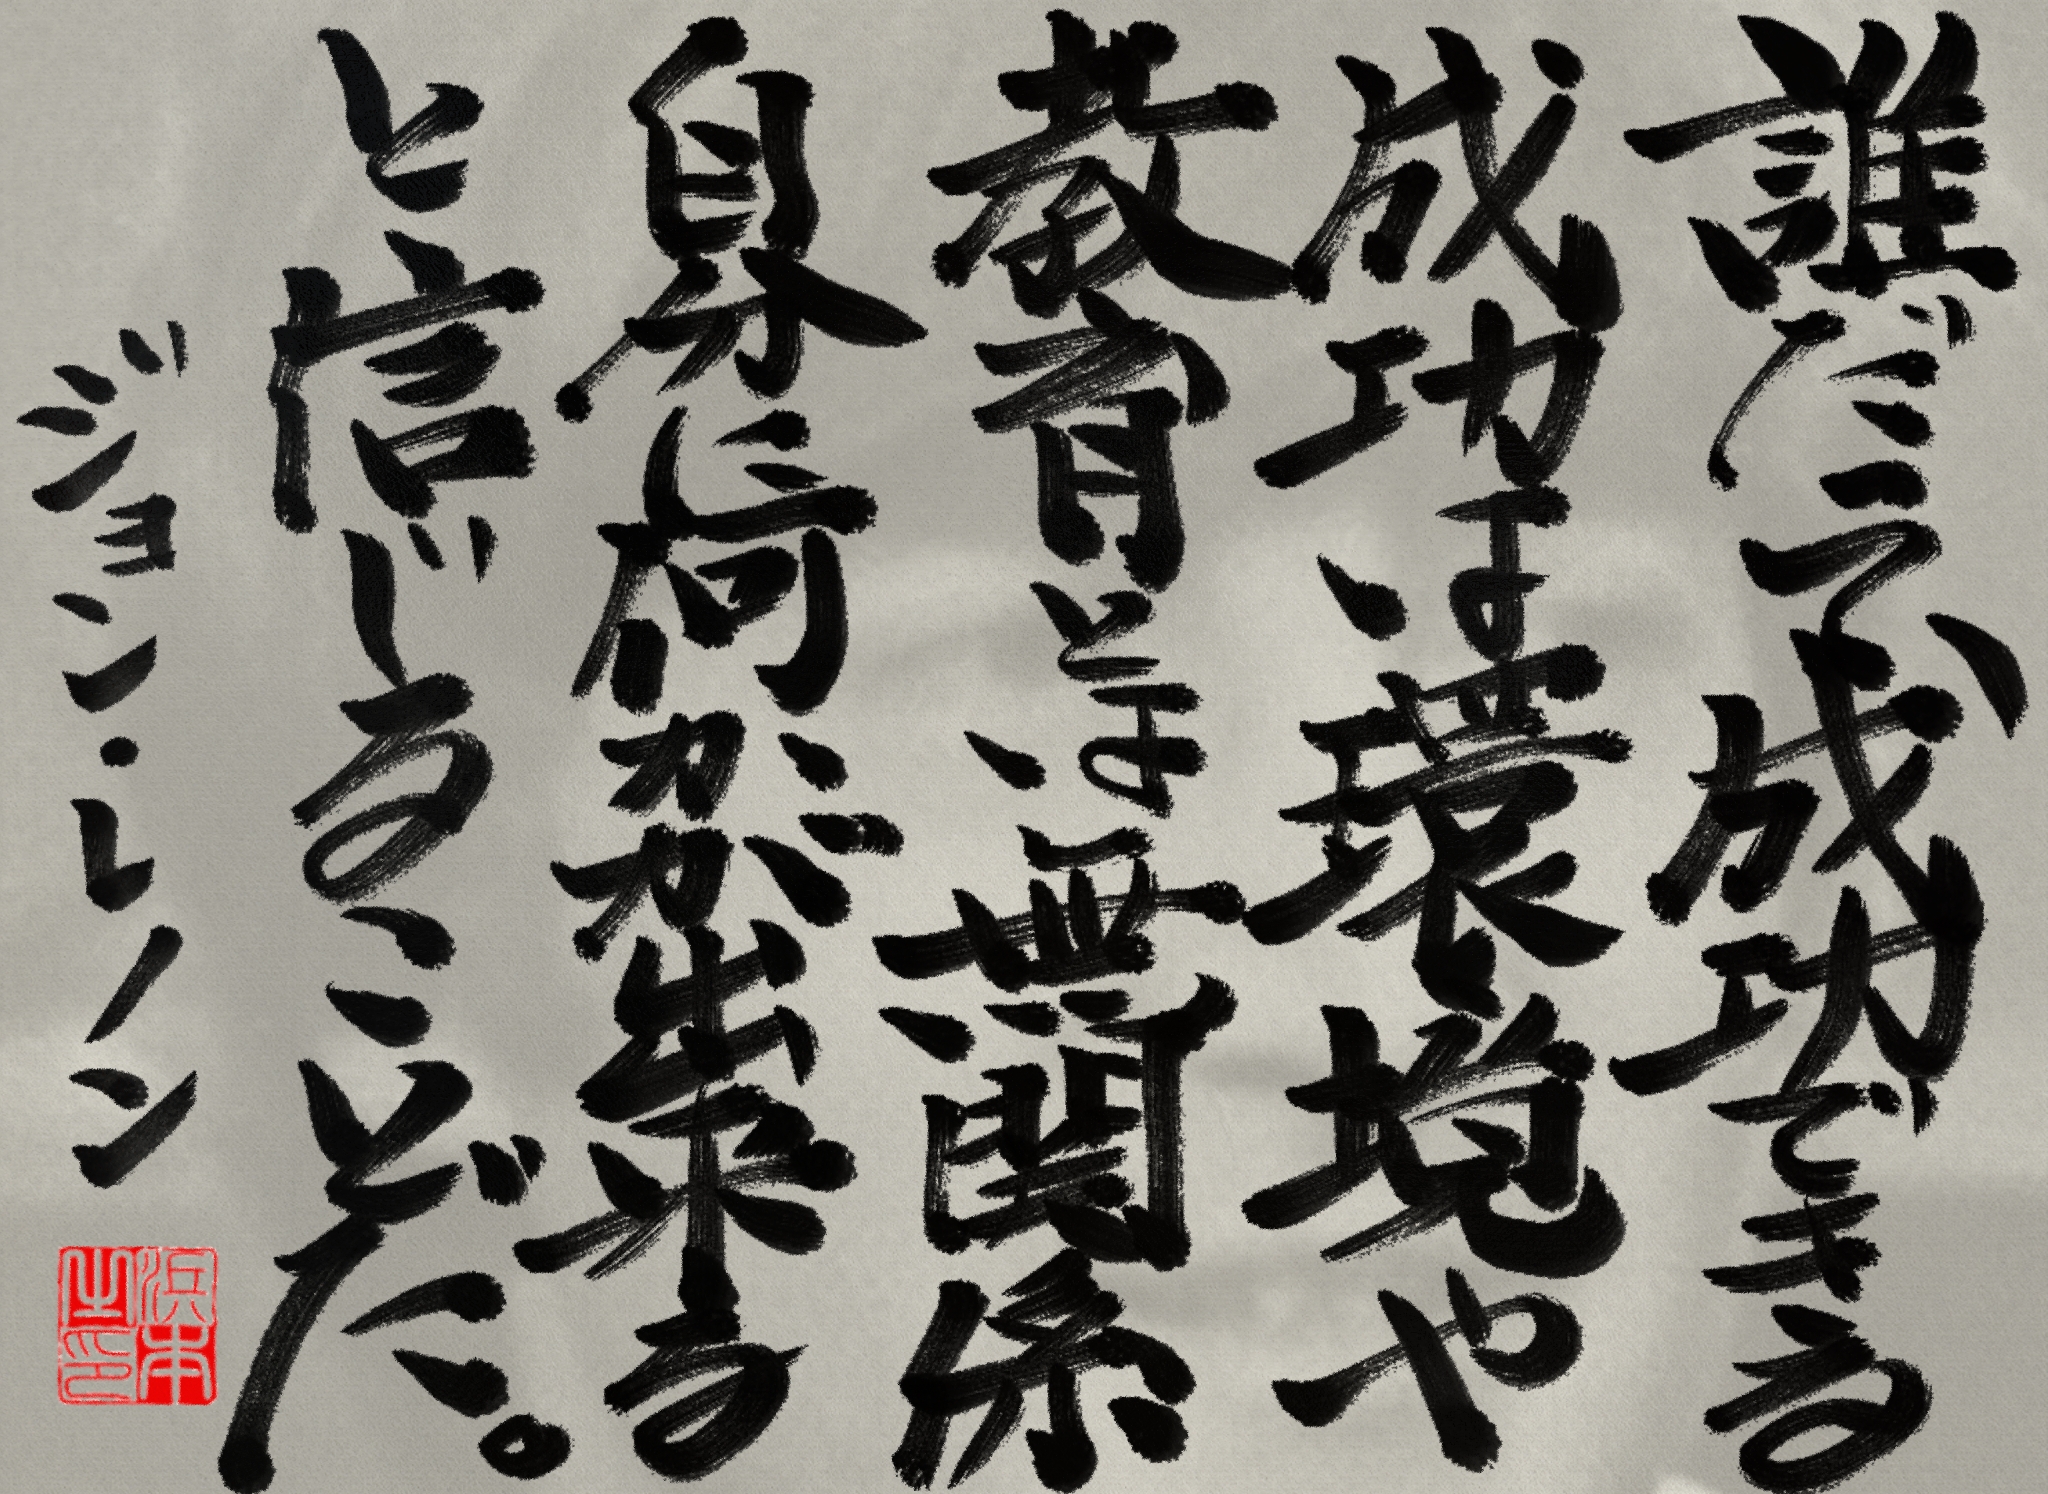 誰だって成功できる
成功は、環境や
教育とは、無関係
自分に何かが出来る
と信じることだ。
ジョン・レノン
浜本
之印